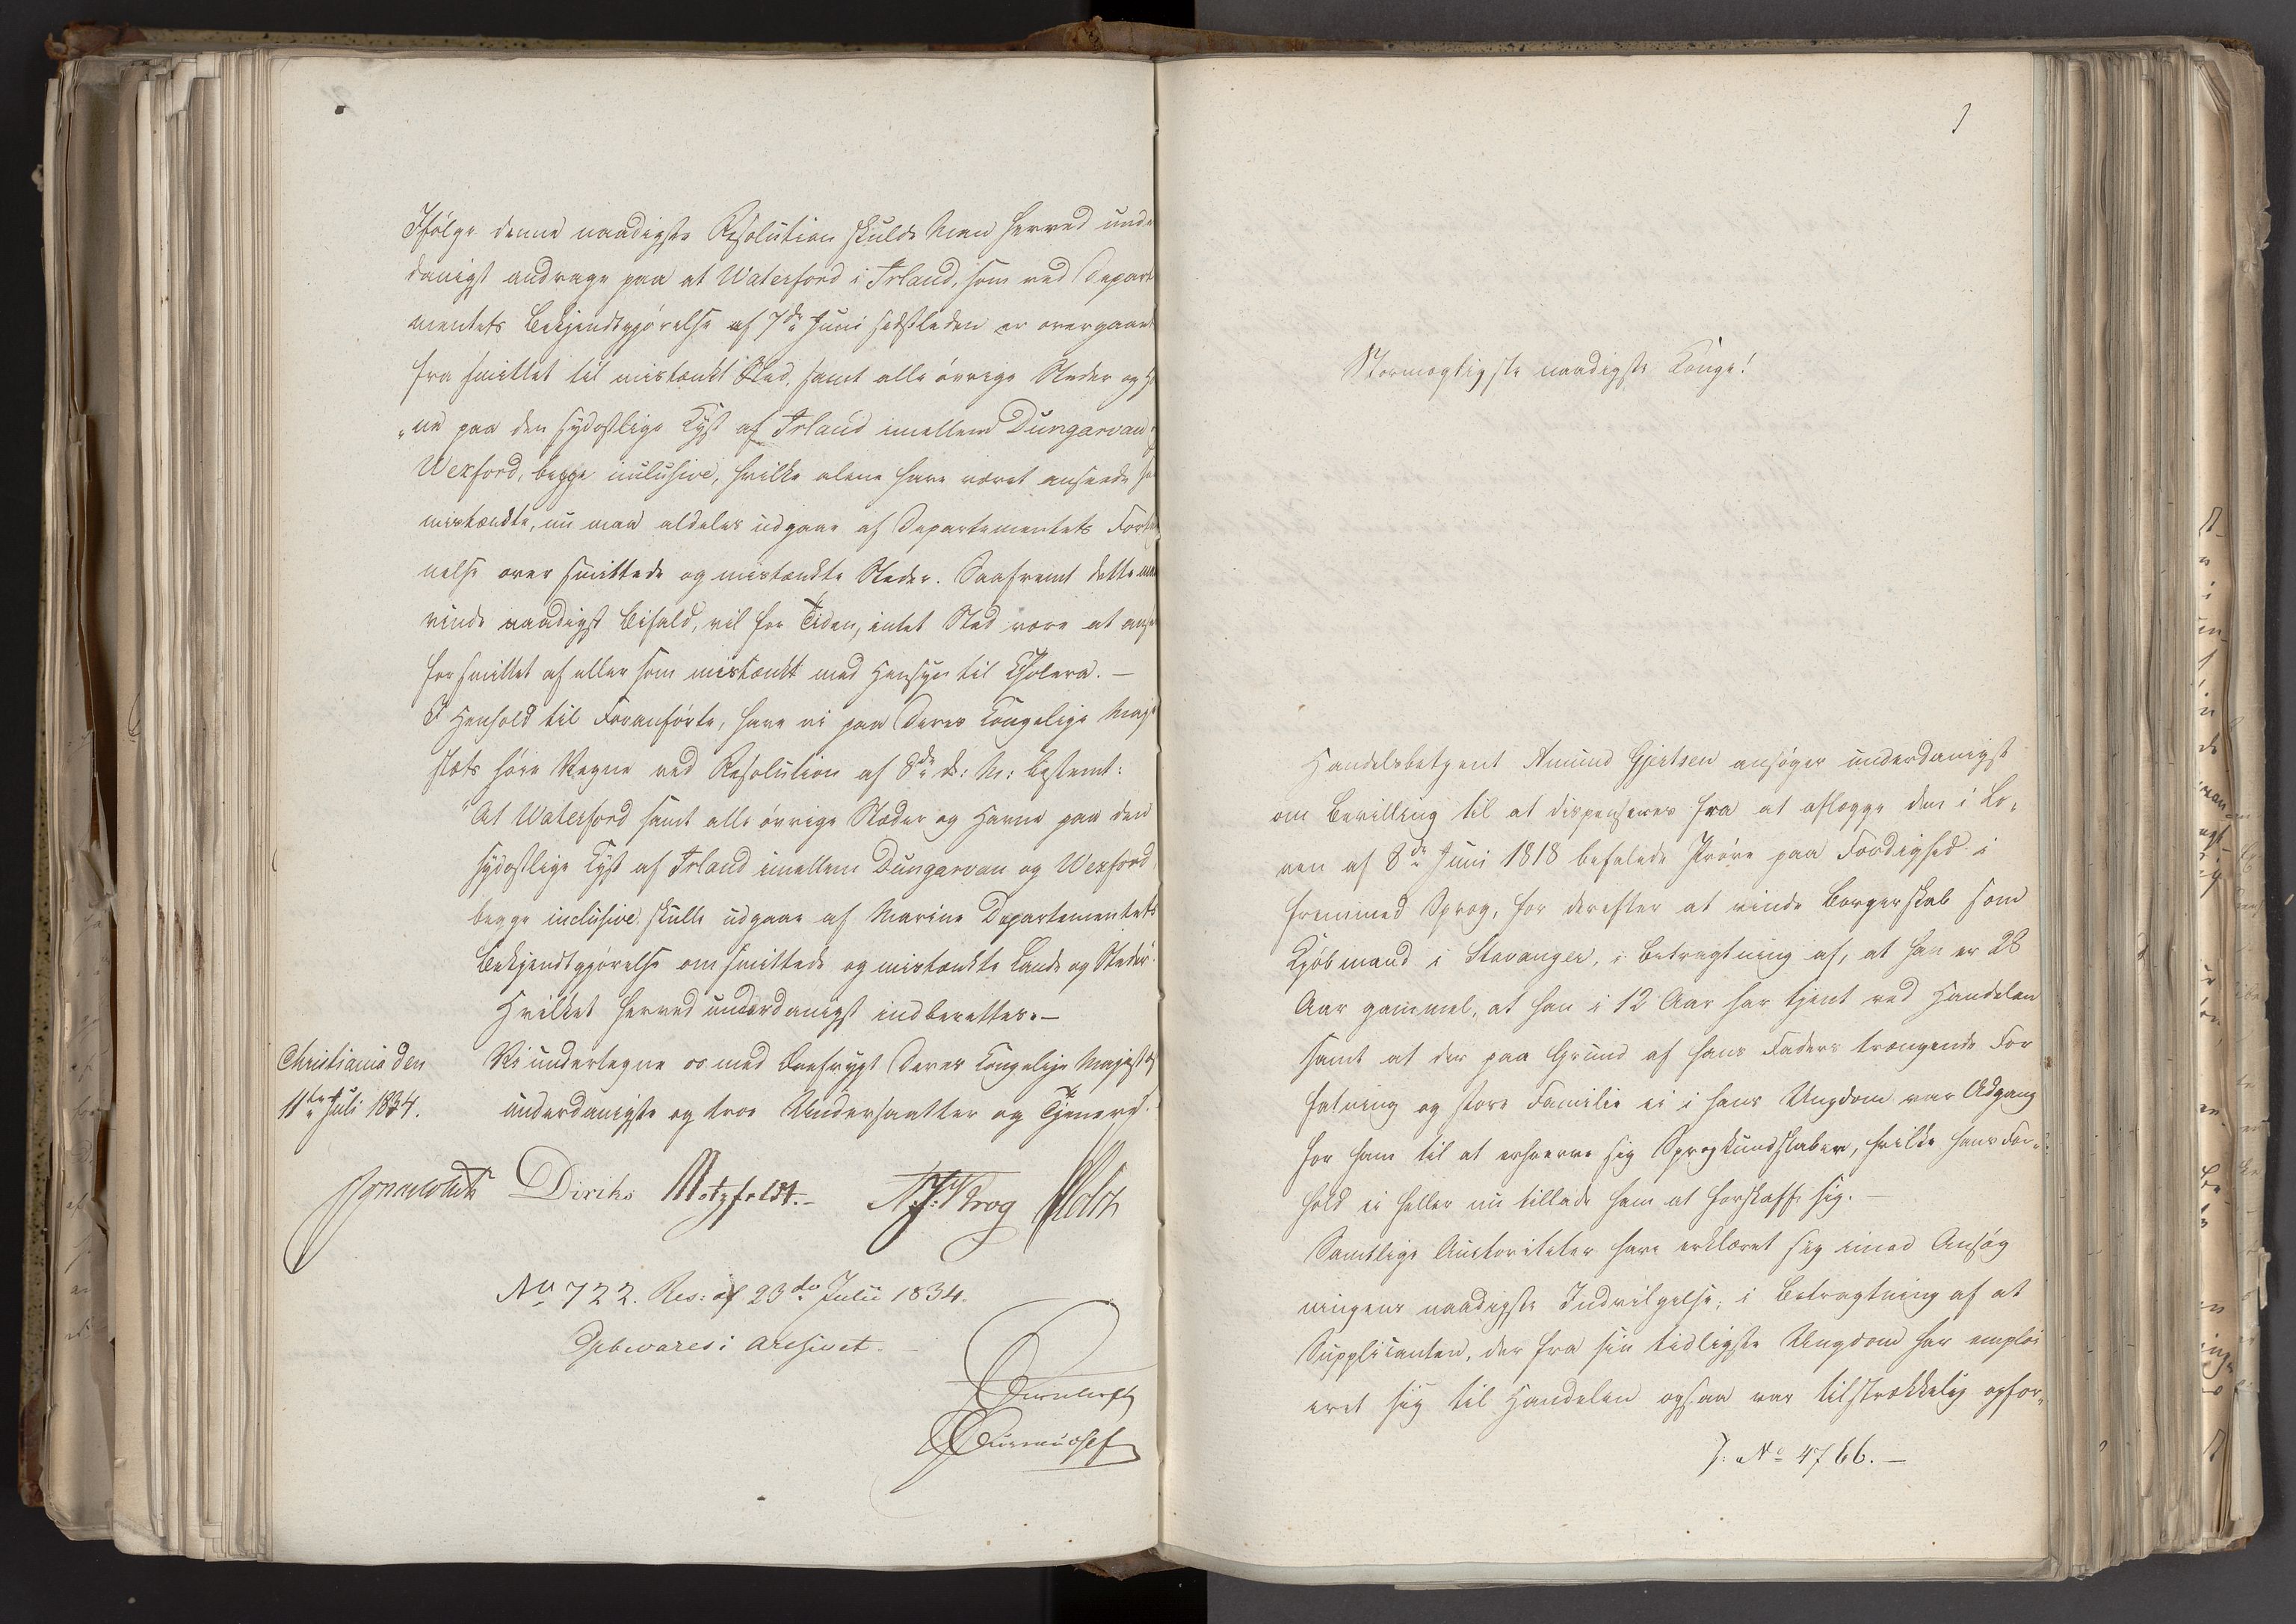 Ifølge denne naadigste Resolution skulde Man herved unde
danigst andrage paa at Waterford i Irland, som ved Depart
mentets Bekjendtgjørelse af 7de Juni sidstleden er overgaaet
fra smittet til mistænkt Sted, samt alle øvrige Steder og H
ne paa den sydostlige Kyst af Irland imellem Dungarvan
Wexford, begge inclusive, hvilke alene have været anseede so
mistænkte, nu maa aldeles udgaae af Departementets Forteg
nelse over smittede og mistænkte Steder. Saafremt dette maa
vinde naadigst Bifald, vil for Tiden, intet Sted være at anse
for smittet af eller som mistænkt med Hensyn til Cholera. —
I Henhold til Foranførte, have vi paa Deres Kongelige Maje
stæts høie Vegne ved Resolution af 8de d: M: bestemt:
"At Waterford samt alle øvrige Stæder og Havne paa den
sydostlige Kyst af Irland imellem Dungarvan og Wexford,
begge inclusive skulle udgaae af Marine Departementets
Bekjendtgjørelse om smittede og mistænkte Lande og Steder."
Hvilket herved underdanigst indberettes. —
Christiania den
11te Juli 1834.
Vi undertegne os med Ærefrygt Deres Kongelige Majestæts
underdanigste og troe Undersaatter og Tjenere.
Diriks Motzfeldt. — Krog Holst
No 722. Res: af 23de Julii 1834.
Gjebevares i Archivet. —
Stormægtigste naadigste Konge!
Handelsbetjent Amund Gjertsen ansøger underdanigst
om Bevilling til at dispenseres fra at aflægge den i Lo-
ven af 8de Juni 1818 befalede Prøve paa Færdighed i
fremmed Sprog, for derefter at vinde Borgerskab som
Kjøbmand i Stavanger, i Betragtning af, at han er 28
Aar gammel, at han i 12 Aar har tjent ved Handelen
samt at der paa Grund af hans Faders trængende For
fatning og store Familie ei i hans Ungdom var Adgang
for ham til at erhverve sig Sprogkundskaber, hvilke hans For-
hold ei heller nu tillade ham at forskaffe sig. —
Samtlige Auctoriteter have erklæret sig imod Ansøg
ningens naadigste Indvilgelse; i Betragtning af at
Supplicanten, der fra sin tidligste Ungdom har emploi
eret sig til Handelen ogsaa var tilstrækkelig opfor-
J: No 4766. —